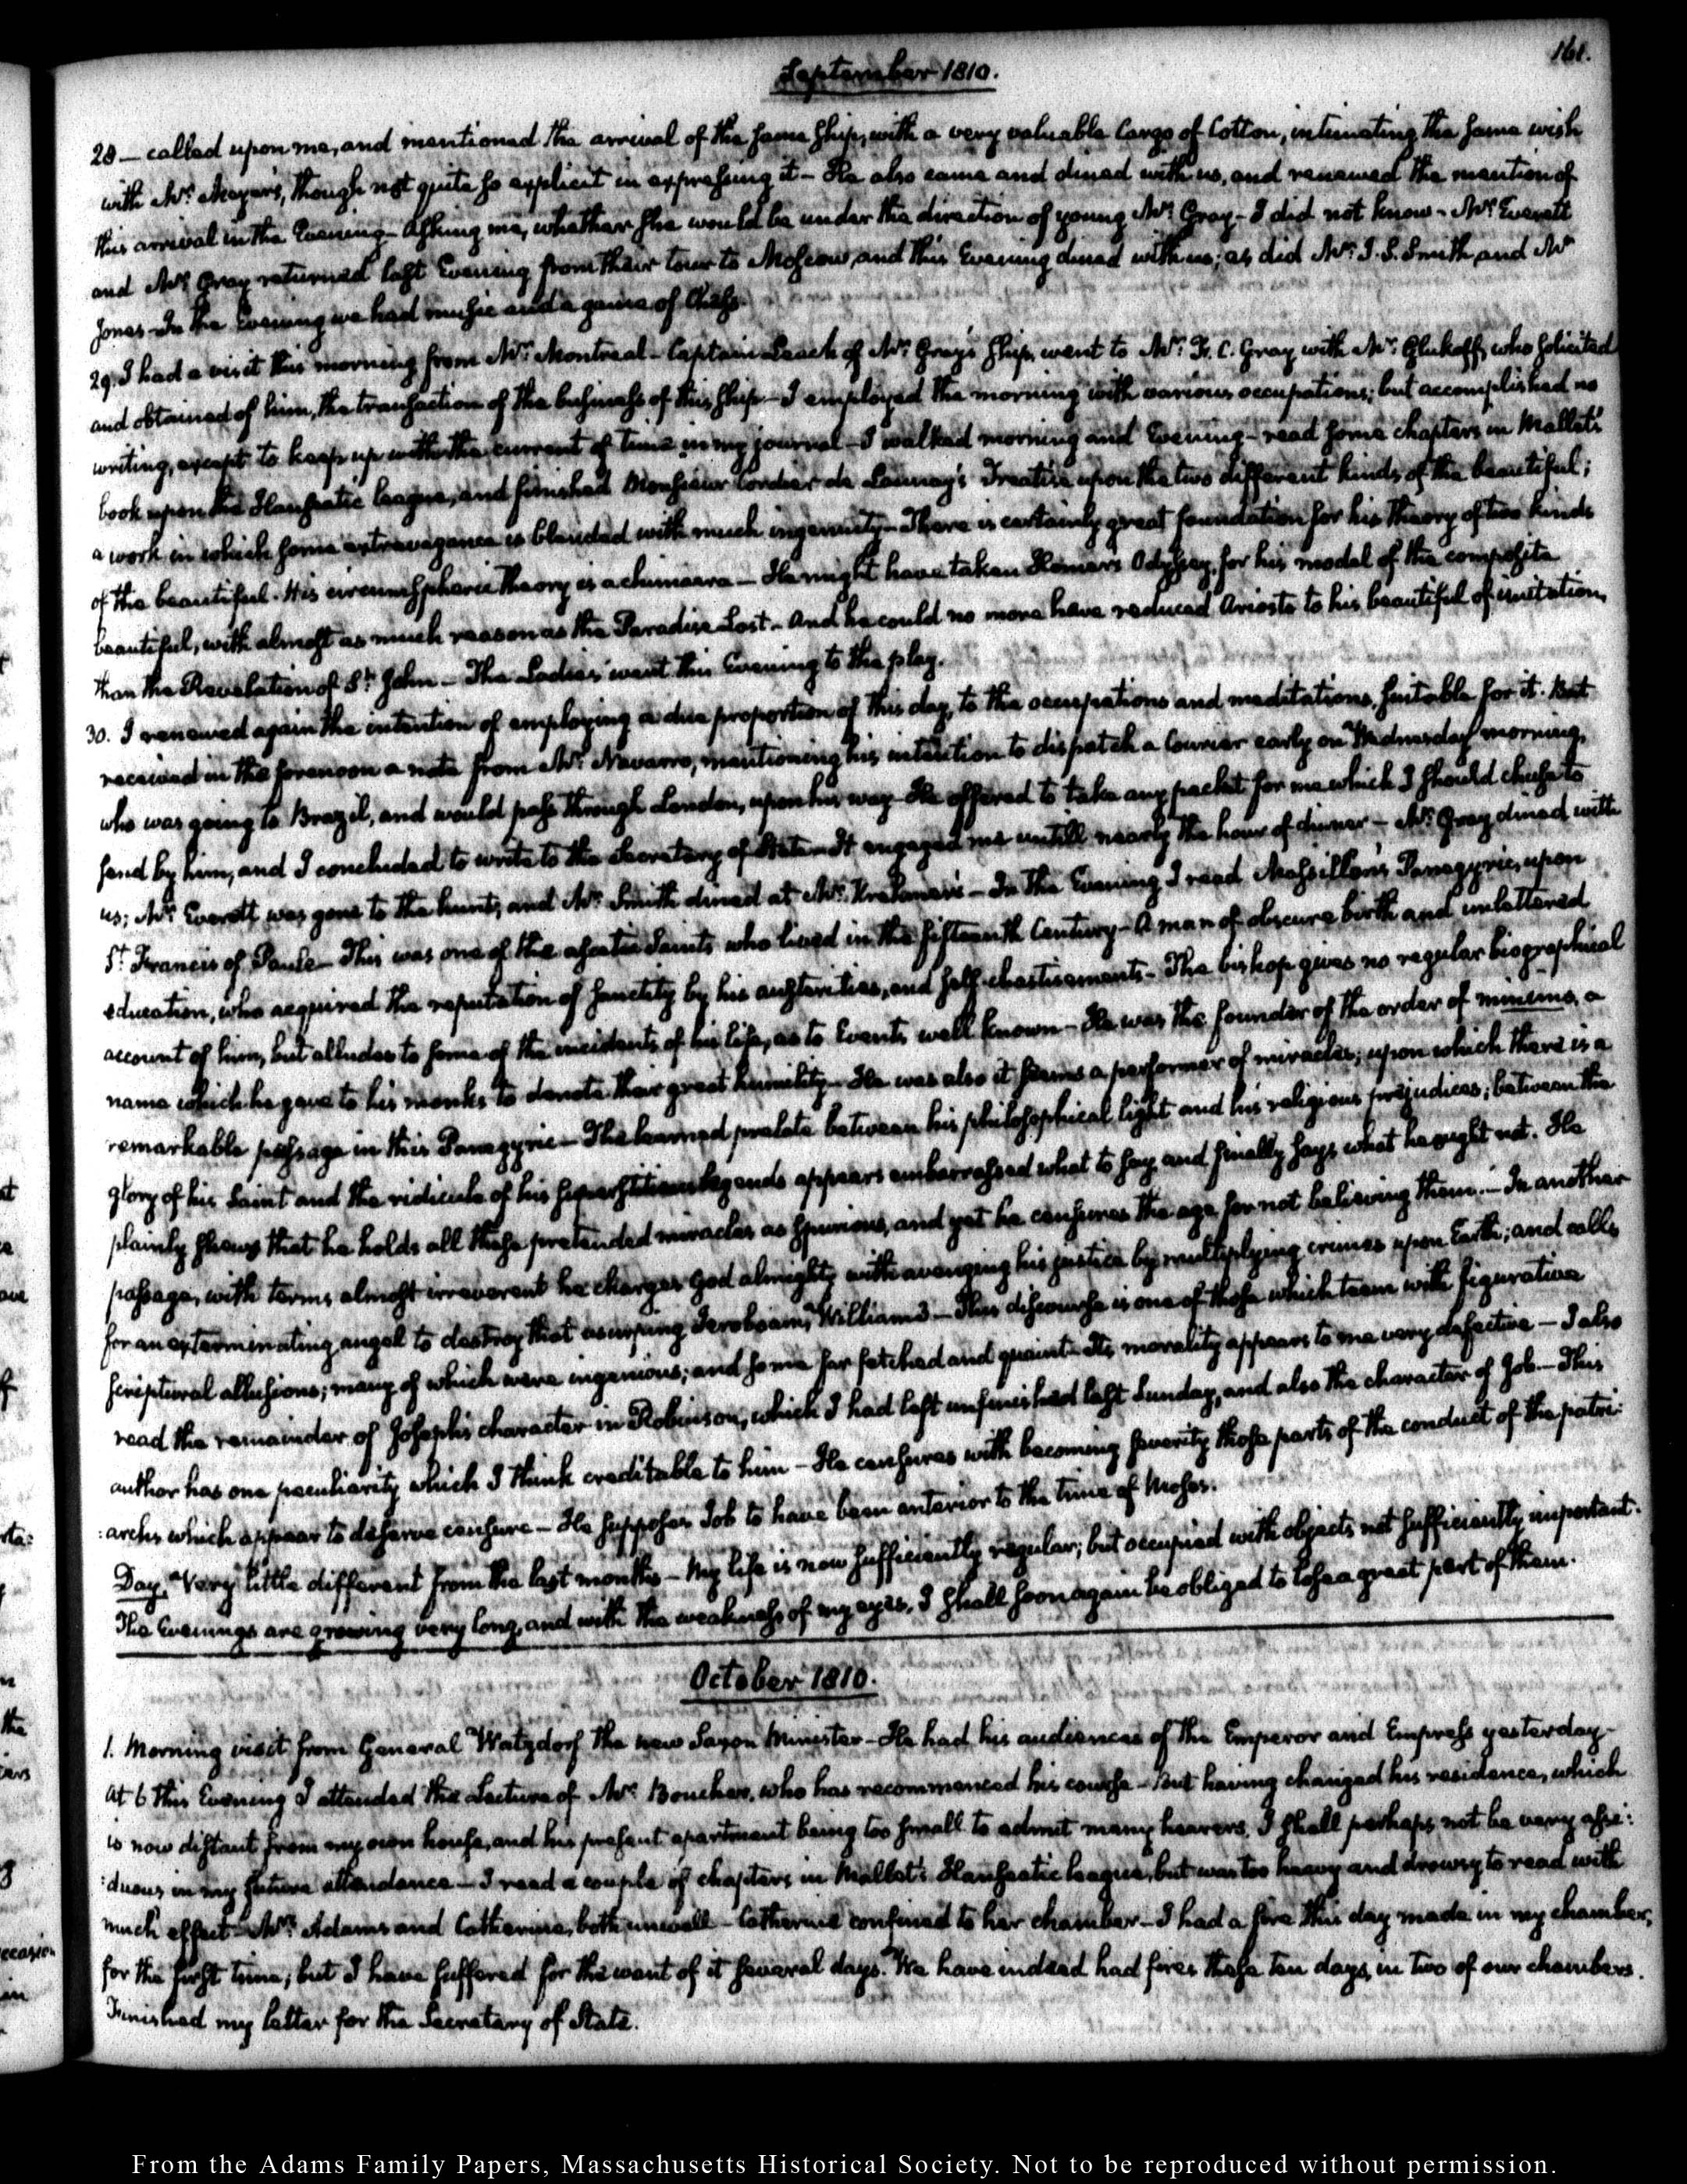 161.
September 1810.
28 — called upon me, and mentioned the arrival of the same ship, with a very valuable Cargo of Cotton, intimating the same wish
with Mr. Meyer's, though not quite so explicit in expressing it — He also came and dined with us, and renewed the mention of
this arrival in the Evening — Asking me, whether she would be under the direction of young Mr. Gray — I did not know — Mr. Everett
and Mr. Gray returned last Evening from their tour to Moscow, and this Evening dined with us; as did Mr. J. S. Smith, and Mr.
Jones — In the Evening we had music and a game of Chess.
29. I had a visit this morning from Mr. Montreal — Captain Leach of Mr. Gray's ship, went to Mr. F. C. Gray with Mr. Glukoff, who solicited
and obtained of him, the transaction of the business of this ship — I employed the morning with various occupations; but accomplished no
writing, except to keep up with the current of time in my journal — I walked morning and Evening — read some chapters in Mallet's
book upon the Hanseatic league, and finished Monsieur Cordier de Launay's Treatise upon the two different kinds of the beautiful;
a work in which some extravagance is blended with much ingenuity — There is certainly great foundation for his theory of two kinds
of the beautiful. His circumspheric theory is a chimaera — He might have taken Homer's Odyssey, for his model of the composite
beautiful, with almost as much reason as the Paradise Lost — And he could no more have reduced Ariosto to his beautiful of imitation,
than the Revelation of St. John — The Ladies went this Evening to the play.
30. I renewed again the intention of employing a due proportion of this day, to the occupations and meditations, suitable for it. But
received in the forenoon a note from Mr. Navarro, mentioning his intention to dispatch a Courier early on Wednesday morning,
who was going to Brazil, and would pass through London, upon his way — He offered to take any packet for me which I should chuse to
send by him, and I concluded to write to the Secretary of State — It engaged me untill nearly the hour of dinner — Mr. Gray dined with
us; Mr. Everett was gone to the hunt, and Mr. Smith dined at Mr. Krehmer's — In the Evening I read Massillon's Panegyric, upon
St. Francis of Paule — This was one of the ascetic Saints who lived in the fifteenth Century — A man of obscure birth and unlettered
education, who acquired the reputation of sanctity by his austerities, and self-chastisements — The bishop gives no regular biographical
account of him, but alludes to some of the incidents of his life, as to Events well known — He was the founder of the order of minims, a
name which he gave to his monks to denote their great humility — He was also it seems a performer of miracles; upon which there is a
remarkable passage in this Panegyric — The learned prelate between his philosophical light and his religious prejudices; between the
glory of his Saint and the ridicule of his superstitious legends appears embarrassed what to say, and finally says what he ought not. He
plainly shows that he holds all these pretended miracles as spurious, and yet he censures the age for not believing them. — In another
passage, with terms almost irreverent he charges God almighty with avenging his justice by multiplying crimes upon Earth; and calls
for an exterminating angel to destroy that usurping Jeroboam, William 3 — This discourse is one of those which teem with figurative
scriptural allusions; many of which were ingenious; and some far fetched and quaint — Its morality appears to me very defective — I also
read the remainder of Joseph's character in Robinson, which I had left unfinished last Sunday, and also the character of Job — This
author has one peculiarity which I think creditable to him — He censures with becoming severity those parts of the conduct of the patri:
:archs which appear to deserve censure — He supposes Job to have been anterior to the time of Moses.
Day, Very little different from the last months — My life is now sufficiently regular; but occupied with objects not sufficiently important.
The Evenings are growing very long, and with the weakness of my eyes, I shall soon again be obliged to lose a great part of them.
October 1810.
1. Morning visit from General Watzdorf the new Saxon Minister — He had his audiences of the Emperor and Empress yesterday —
At 6 this Evening I attended the Lecture of Mr. Boucher, who has recommenced his course — But having changed his residence, which
is now distant from my own house, and his present apartment being too small to admit many hearers, I shall perhaps not be very assi:
:duous in my future attendance — I read a couple of chapters in Mallet's Hanseatic league, but was too heavy and drowsy to read with
much effect — Mrs. Adams and Catherine, both unwell — Catherine confined to her chamber — I had a fire this day made in my chamber,
for the first time; but I have suffered for the want of it several days. We have indeed had fires these ten days, in two of our chambers.
Finished my letter for the Secretary of State.
From the Adams Family Papers, Massachusetts Historical Society. Not to be reproduced without permission.